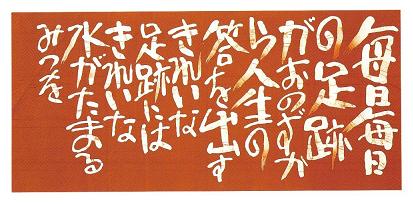 毎日毎日
の足跡
がおのずか
ら人生の
答を出す
きれいな
足跡には
きれいな
水がたまる
みつを